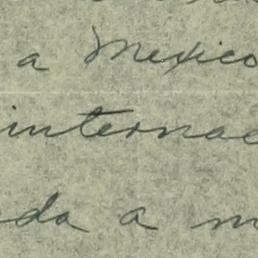 a Mexico
internac
da a m